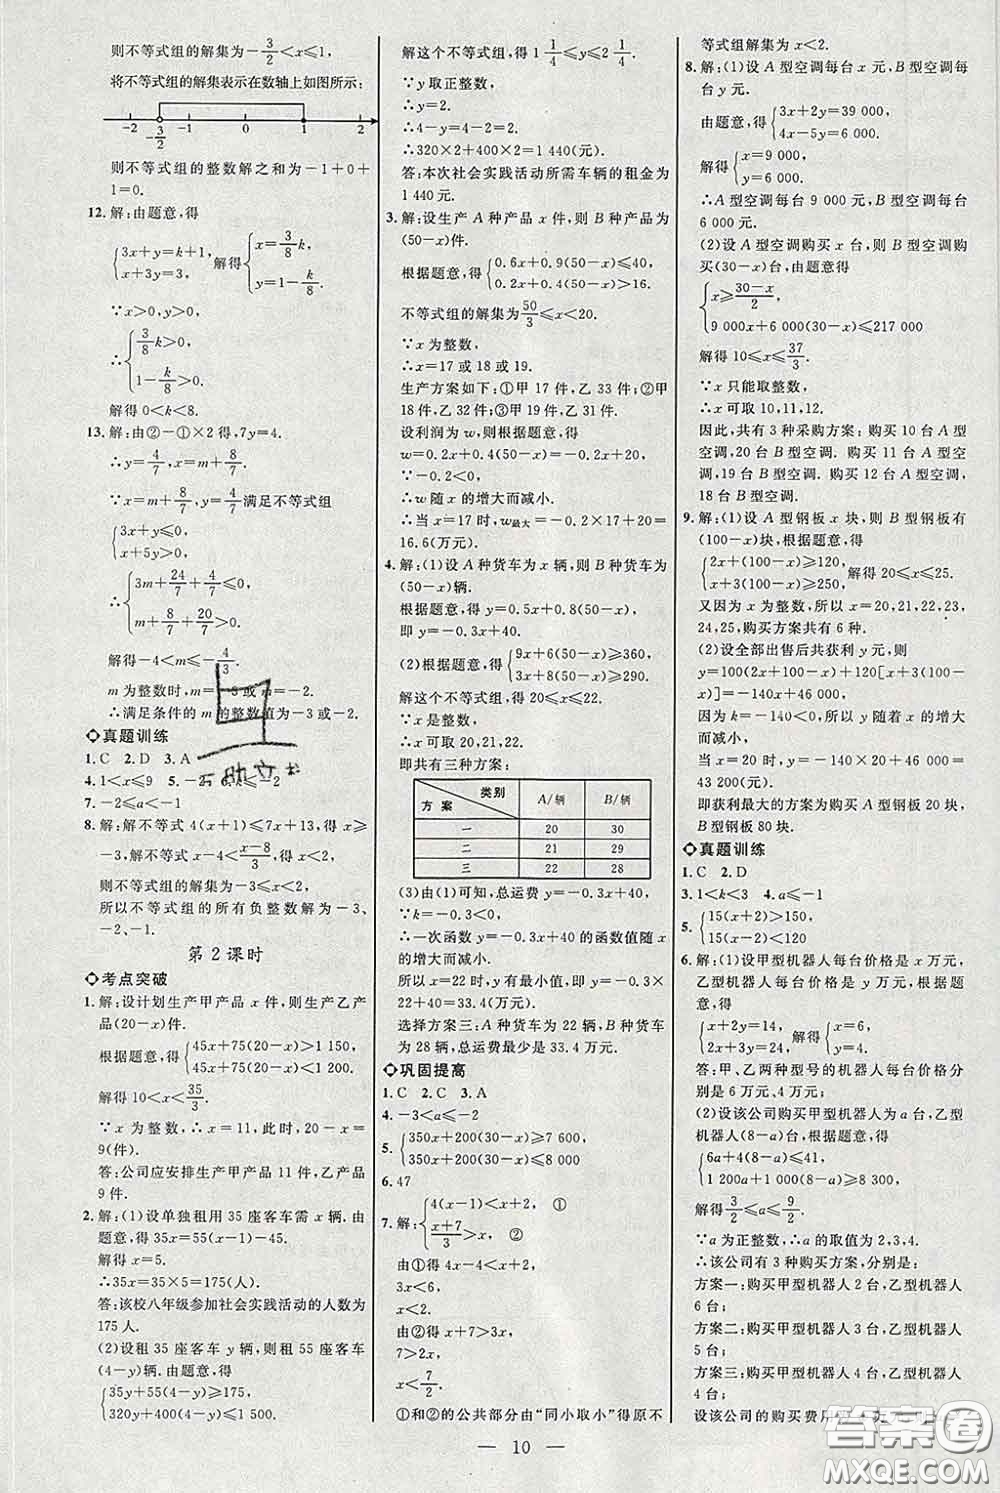 则不等式组的解集为-3/2<x≤1.
将不等式组的解集表示在数轴上如图所示:
-2 -3/2 -1 0 1 2
则不等式组的整数解之和为-1+0+
1=0.
12.解:由题意,得
{3x+y=k+1, x+3y=3, 解得{x=3/8k, y=1-k/8.
∵x>0,y>0,
∴{3/8k>0, 1-k/8>0.
解得0<k<8.
13.解:由②-①×2得,7y=4.
∴y=4/7,x=m+8/7.
∵x=m+8/7,y=4/7满足不等式组
{3x+y≤0, x+5y>0,
∴{3m+24/7+4/7≤0, m+8/7+20/7>0.
解得-4<m≤-4/3.
m为整数时,m=-3或m=-2.
∴满足条件的m的整数值为-3或-2.
真题训练
1.C 2.D 3.A
4.1<x≤9 5.-2
7.-2≤a<-1
8.解:解不等式4(x+1)≤7x+13,得x≥
-3,解不等式x-4<(x-8)/3,得x<2,
则不等式组的解集为-3≤x<2,
所以不等式组的所有负整数解为-3、
-2、-1.
第2课时
考点突破
1.解:设计划生产甲产品x件,则生产乙产
品(20-x)件.
根据题意,得{45x+75(20-x)>1 150, 45x+75(20-x)<1 200.
解得10<x<35/3.
∵x为整数,∴x=11,此时,20-x=
9(件).
答:公司应安排生产甲产品11件,乙产品
9件.
2.解:(1)设单独租用35座客车需x辆.由
题意,得35x=55(x-1)-45.
解得x=5.
∴35x=35×5=175(人).
答:该校八年级参加社会实践活动的人数为
175人.
(2)设租35座客车y辆,则租55座客车
(4-y)辆.由题意,得
{35y+55(4-y)≥175, 320y+400(4-y)≤1 500.
解这个不等式组,得1 1/4≤y≤2 1/4.
∵y取正整数,
∴y=2.
∴4-y=4-2=2.
∴320×2+400×2=1 440(元).
答:本次社会实践活动所需车辆的租金为
1 440元.
3.解:设生产A种产品x件,则B种产品为
(50-x)件.
根据题意,得{0.6x+0.9(50-x)≤40, 0.2x+0.4(50-x)>16.
不等式组的解集为50/3≤x<20.
∵x为整数,
∴x=17或18或19.
生产方案如下:①甲17件,乙33件;②甲
18件,乙32件;③甲19件,乙31件.
设利润为w,则根据题意,得
w=0.2x+0.4(50-x)=-0.2x+20.
∵-0.2<0,
∴w随x的增大而减小.
∴当x=17时,w最大=-0.2×17+20=
16.6(万元).
4.解:(1)设A种货车为x辆,则B种货车为
(50-x)辆.
根据题意,得y=0.5x+0.8(50-x),
即y=-0.3x+40.
(2)根据题意,得{9x+6(50-x)≥360, 3x+8(50-x)≥290.
解这个不等式组,得20≤x≤22.
∵x是整数,
∴x可取20,21,22.
即共有三种方案:
方案 类别 A/辆 B/辆
一 20 30
二 21 29
三 22 28
(3)由(1)可知,总运费y=-0.3x+40,
∵k=-0.3<0,
∴一次函数y=-0.3x+40的函数值随x
的增大而减小.
所以x=22时,y有最小值,即y=-0.3×
22+40=33.4(万元).
选择方案三:A种货车为22辆,B种货车
为28辆,总运费最少是33.4万元.
巩固提高
1.C 2.C 3.A
4.-3<a≤-2
5.{350x+200(30-x)≥7 600, 350x+200(30-x)≤8 000
6.47
7.解:{4(x-1)<x+2, ① (x+7)/3>x, ②
由①得4x-4<x+2,
3x<6,
x<2.
由②得x+7>3x,
7>2x,
x<7/2.
①和②的公共部分由“同小取小”得原不
等式组解集为x<2.
8.解:(1)设A型空调每台x元,B型空调每
台y元.
由题意,得{3x+2y=39 000, 4x-5y=6 000.
解得{x=9 000, y=6 000.
∴A型空调每台9 000元,B型空调每台
6 000元.
(2)设A型空调购买x台,则B型空调购
买(30-x)台,由题意得
{x≥(30-x)/2, 9 000x+6 000(30-x)≤217 000
解得10≤x≤37/3.
∵x只能取整数,
∴x可取10,11,12.
因此,共有3种采购方案:购买10台A型
空调,20台B型空调.购买11台A型空
调,19台B型空调.购买12台A型空调,
18台B型空调.
9.解:(1)设A型钢板x块,则B型钢板有
(100-x)块,根据题意,得
{2x+(100-x)≥120, x+3(100-x)≥250, 解得20≤x≤25.
又因为x为整数,所以x=20,21,22,23,
24,25,购买方案共有6种.
(2)设全部出售后共获利y元,则
y=100(2x+100-x)+120[x+3(100-
x)]=-140x+46000
因为k=-140<0,所以y随着x的增大
而减小,
当x=20时,y=-140×20+46000=
43 200(元).
即获利最大的方案为购买A型钢板20块,
B型钢板80块.
真题训练
1.C 2.D
3.1<k<3 4.a≤-1
5.{15(x+2)>150, 15(x-2)<120
6.解:(1)设甲型机器人每台价格是x万元,
乙型机器人每台价格是y万元,根据题
意,得
{x+2y=14, 2x+3y=24, 解得{x=6, y=4.
答:甲、乙两种型号的机器人每台价格分
别是6万元、4万元;
(2)设该公司购买甲型机器人为a台,乙型
机器人(8-a)台,根据题意,得
{6a+4(8-a)≤41, 1 200a+1 000(8-a)≥8 300.
解得3/2≤a≤9/2.
∵a为正整数,∴a的取值为2,3,4.
∴该公司有3种购买方案,分别是:
方案一:购买甲型机器人2台,乙型机器人
6台;
方案二:购买甲型机器人3台,乙型机器人
5台;
方案三:购买甲型机器人4台,乙型机器人
4台;
设该公司的购买费用
— 10 —
答案圈
MXQE.COM